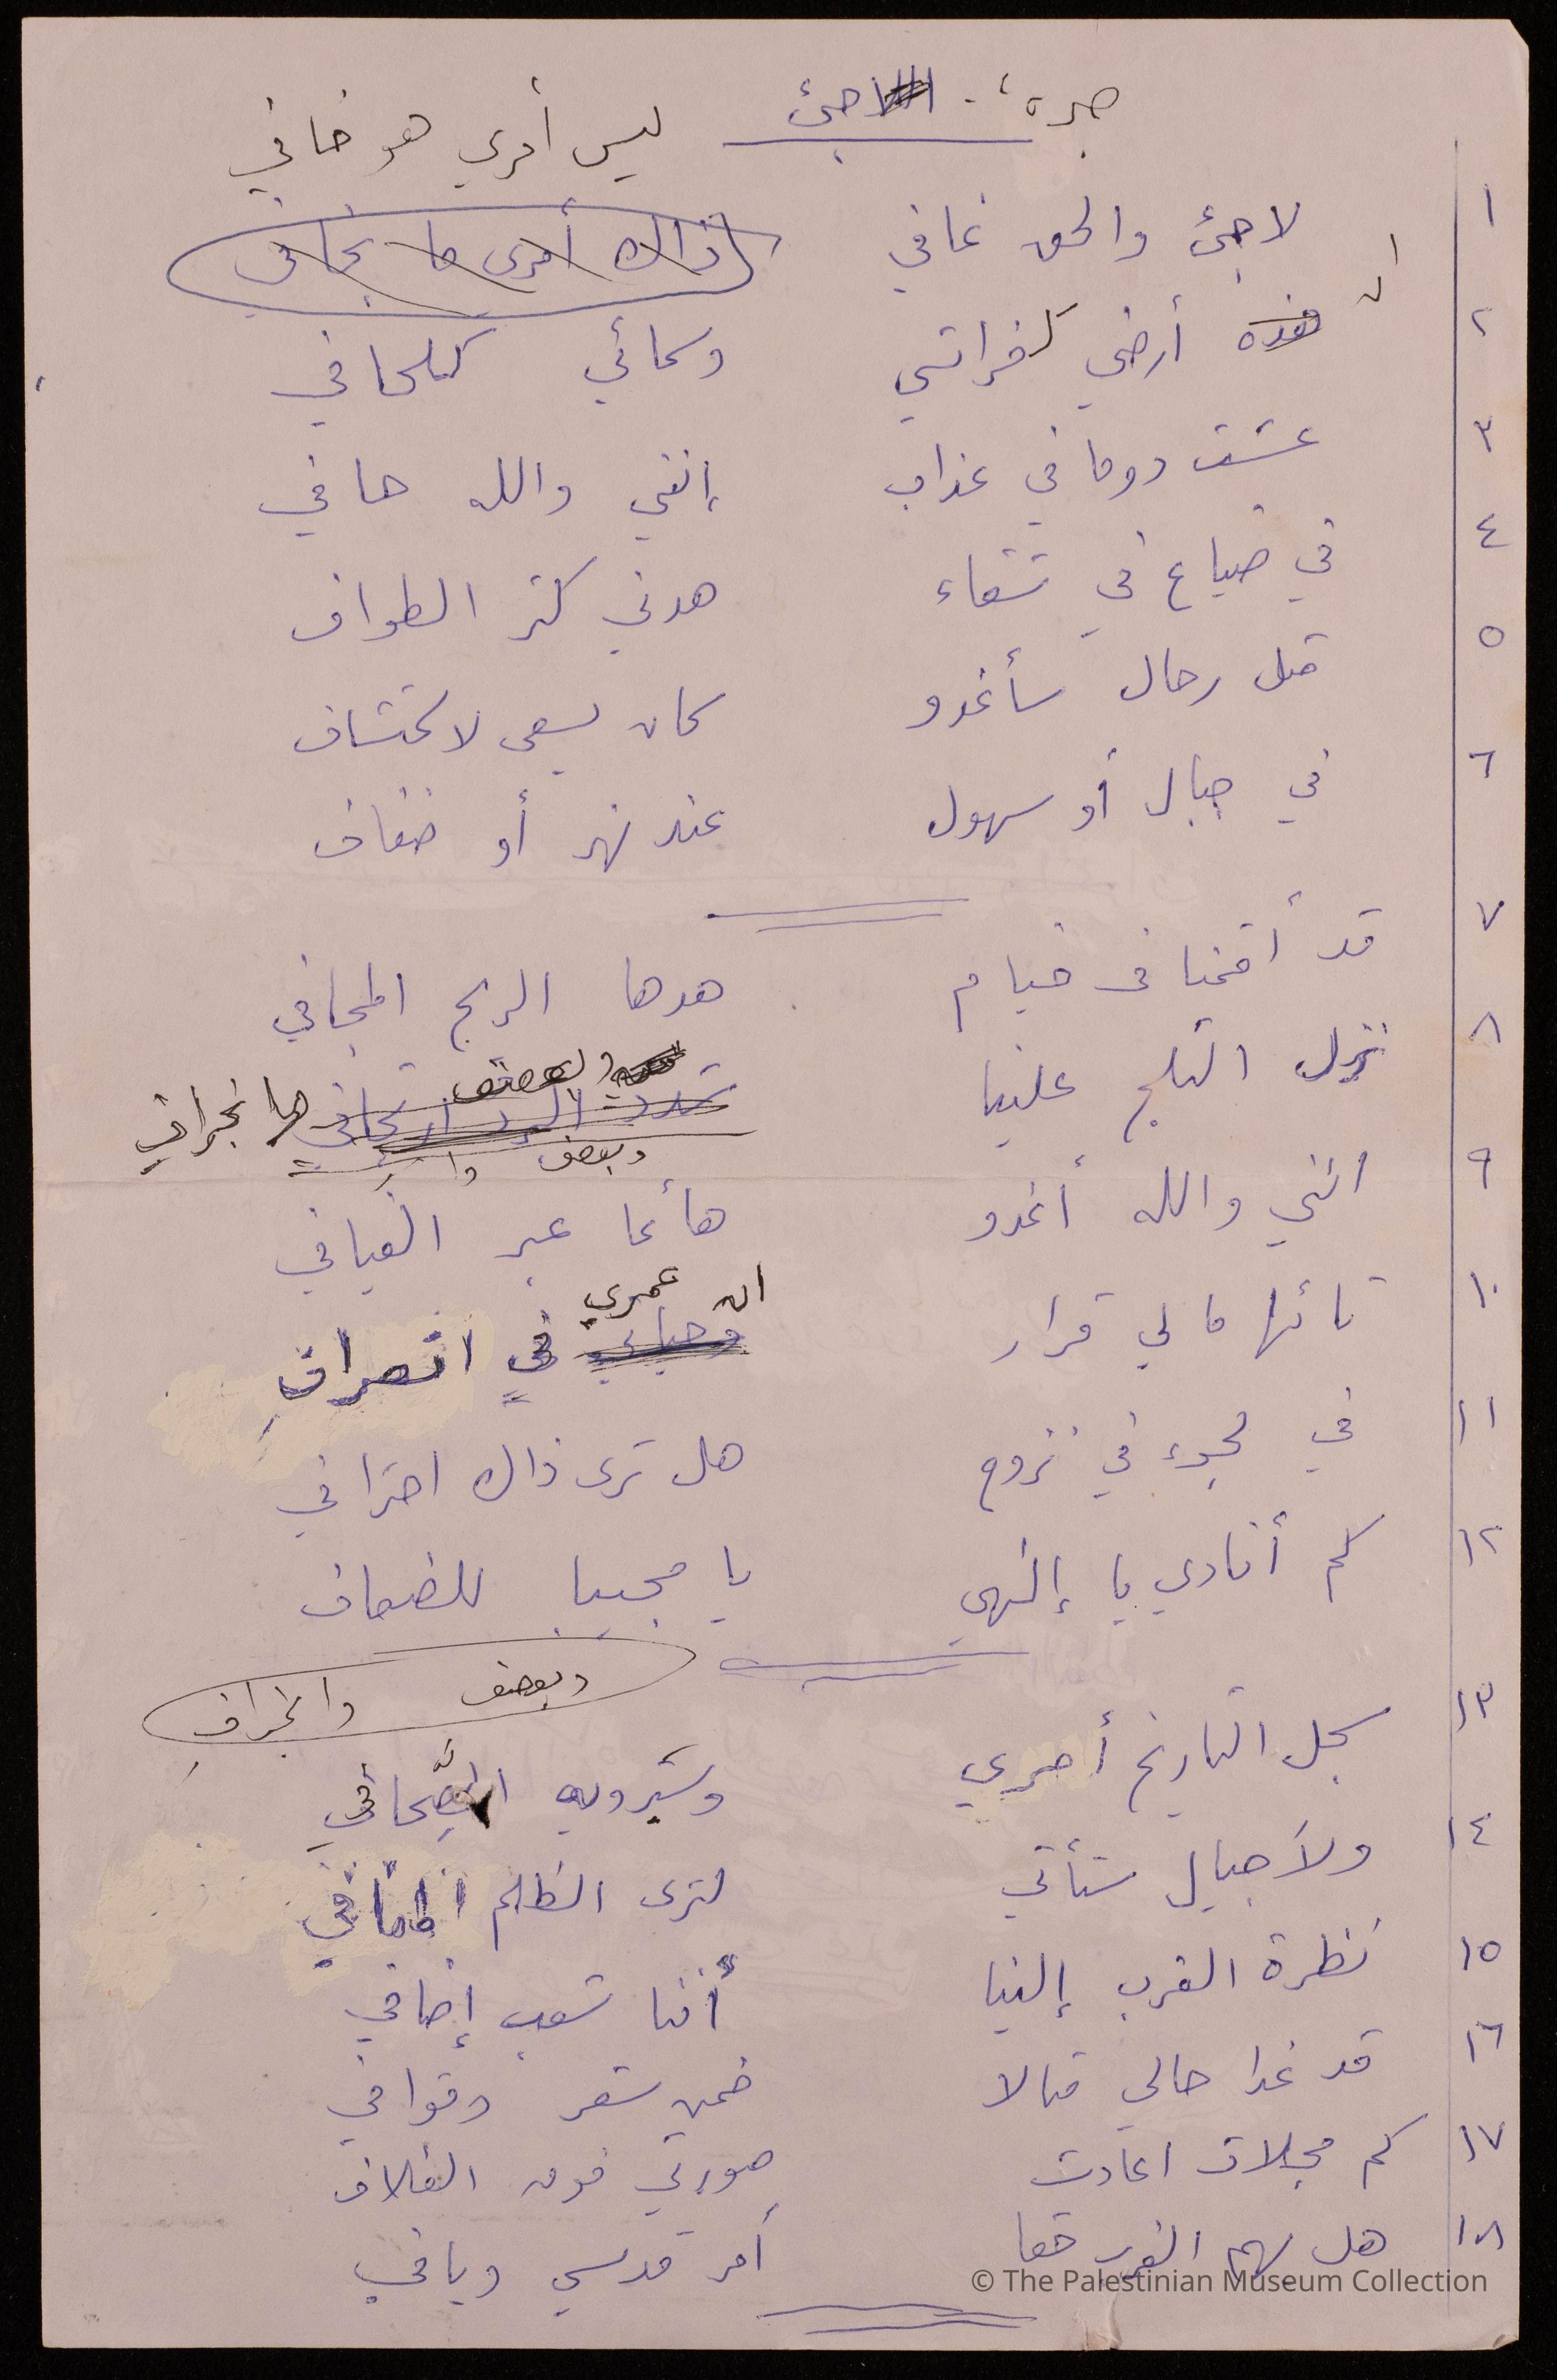 صرخة لاجئ
ليس أمري هو خافي
١ لاجئ والحق غافي ذاك أمري ما بخافي
٢ ان هذه أرضي كفراشي وسمائي كلحافي
٣ عشت دوما في عذاب إنني والله حافي
٤ في ضياع في شقاء هدني كثر الطواف
٥ مثل رحال سأغدو كان يسعى لاكتشاف
٦ في جبال أو سهول عند نهر أو ضفاف
٧ قد أقمنا في خيام هدها الريح المجافي
٨ نزل الثلج علينا وبعصف وانجراف
وبعصف وا
٩ انني والله أغدو هائما عبر الفيافي
١٠ تائها ما لي قرار ان عمري في انصراف
١١ في لجوء في نزوح هل ترى ذاك احترافي
١٢ كم أنادي يا إلهي يا مجيبا للضعاف
وبعصف وانجراف
١٣ سجل التاريخ أمري وسيرويه الصحافي
١٤ ولأجيال ستأتي لترى الظلم المنافي
١٥ نظرة الغرب إلينا أننا شعب إضافي
١٦ قد غدا حالي مثالا ضمن شعر وقوافي
١٧ كم مجلات اعادت صورتي فوق الغلاف
١٨ هل يهم الغرب حقا أمر قدسي ويافي
© The Palestinian Museum Collection